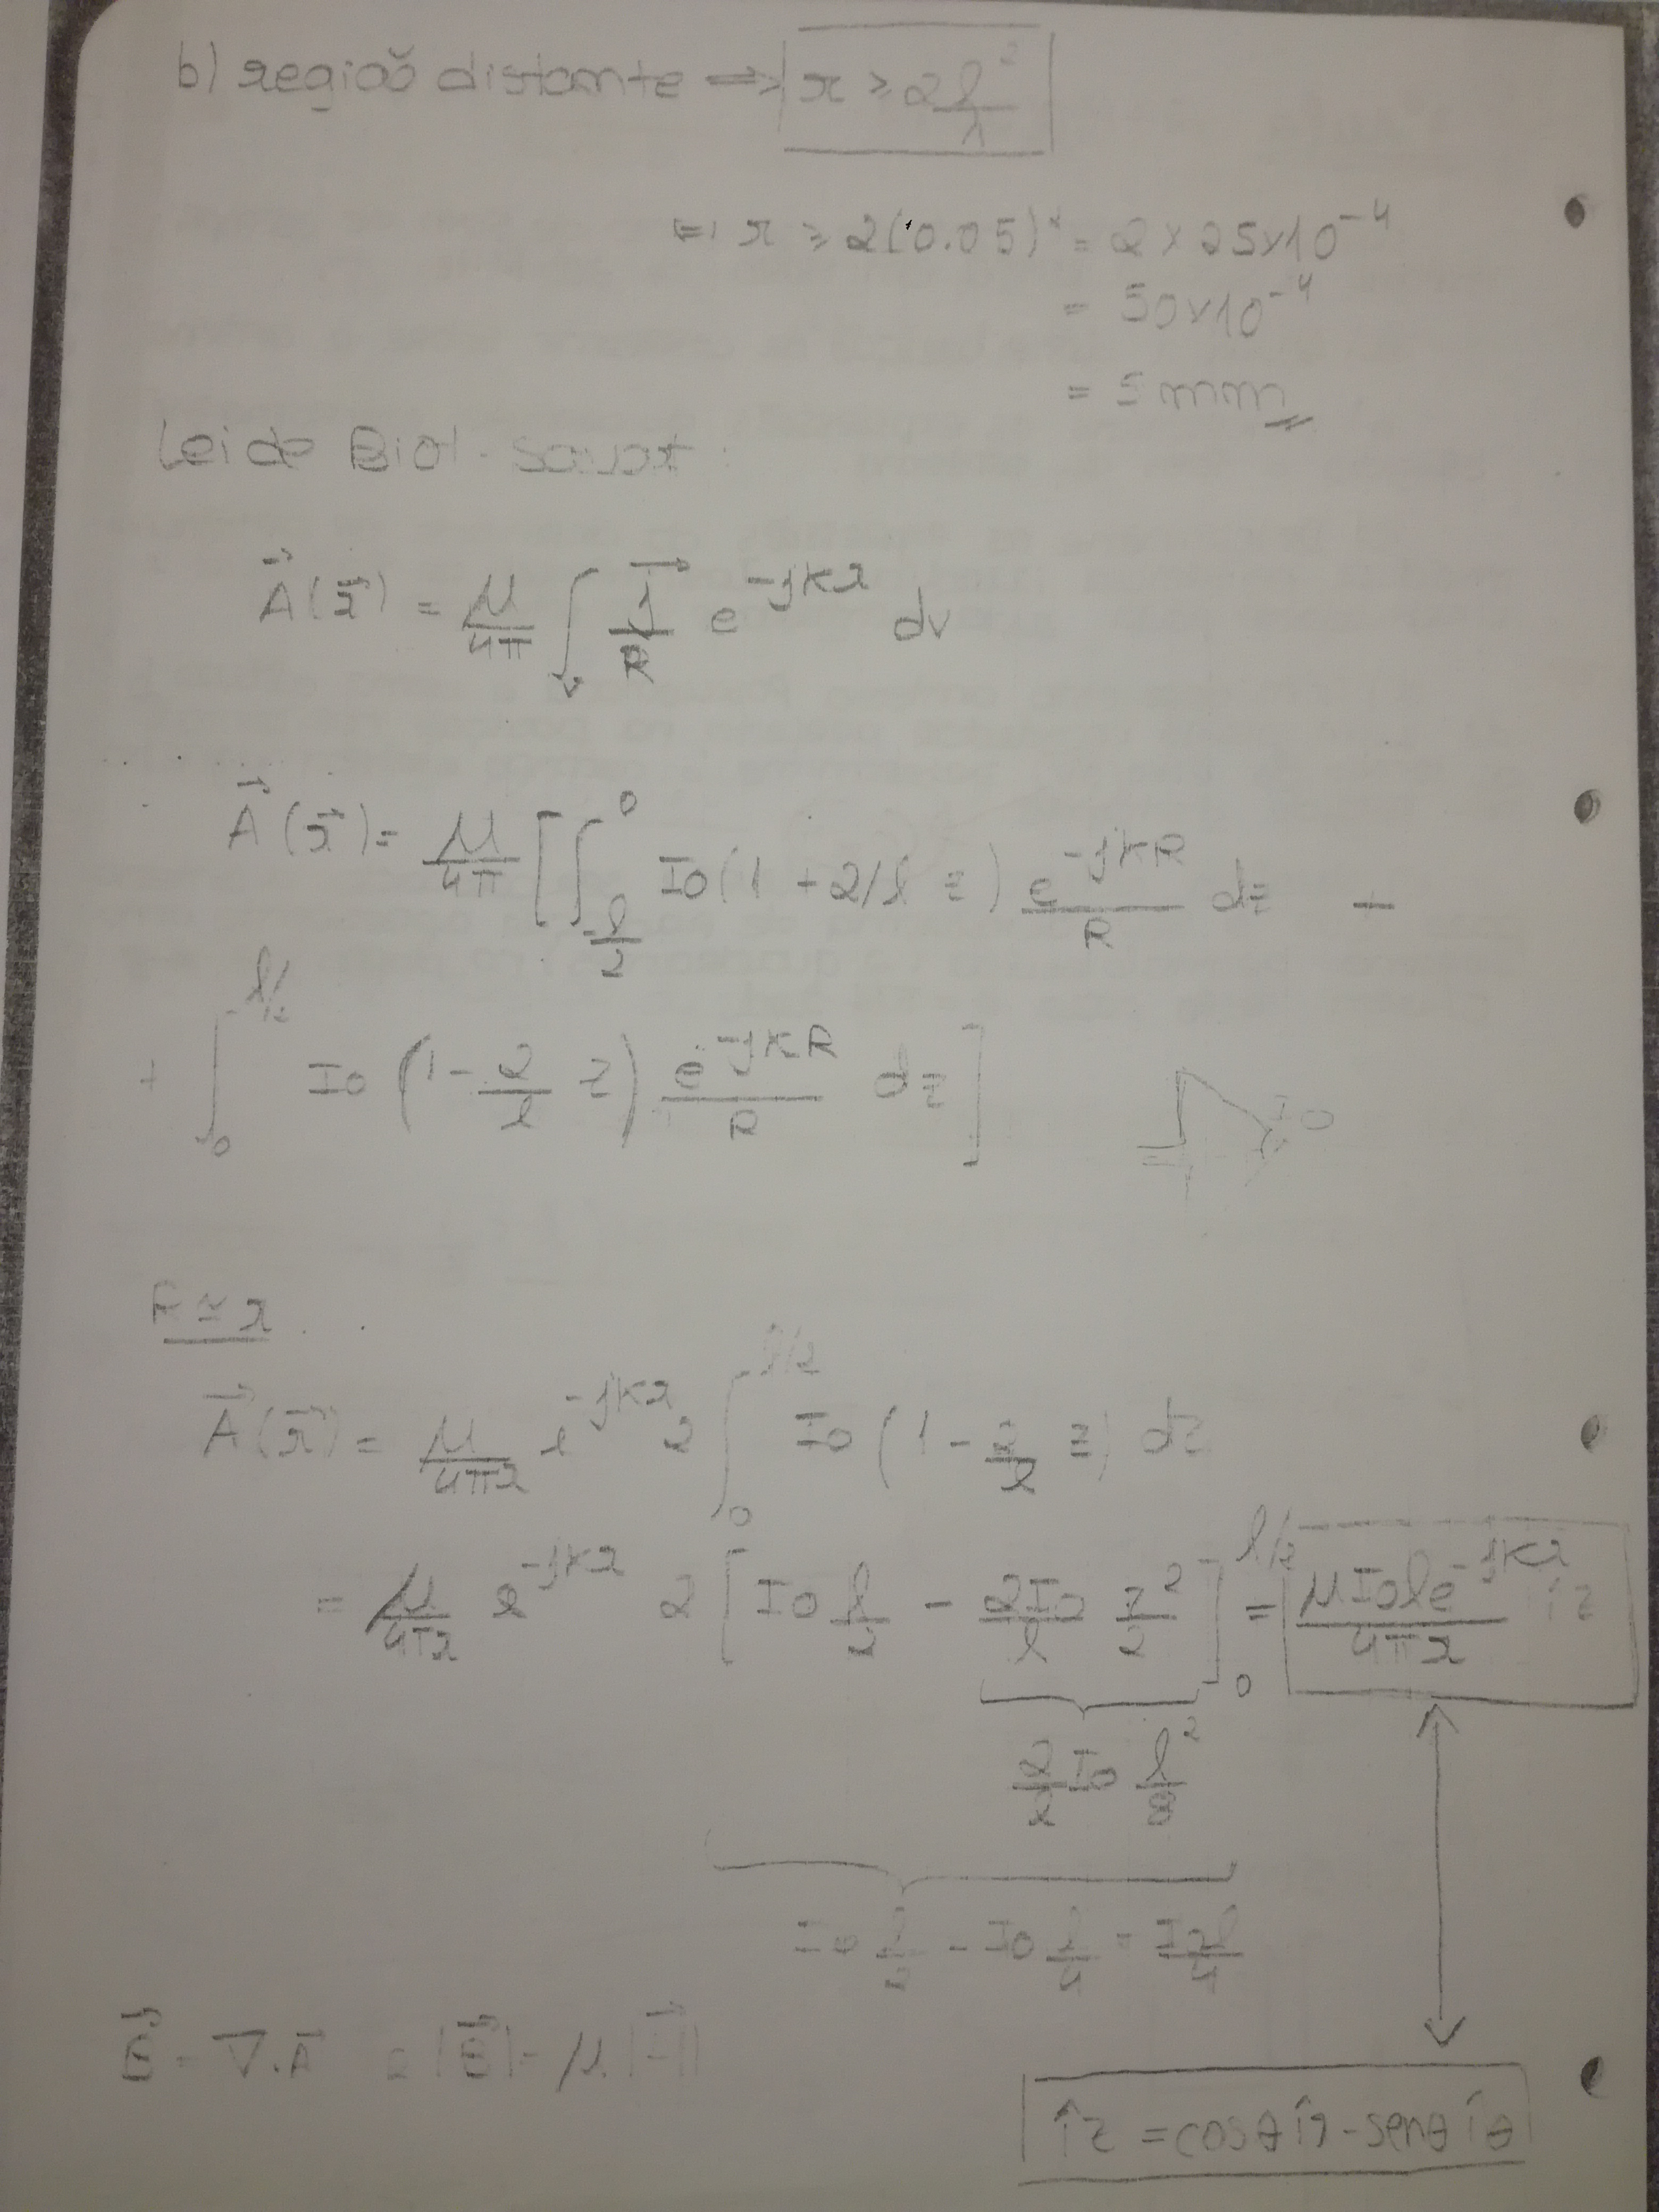 b) região distante ⟹ r ≥ 2l²/λ
=> r ≥ 2(0.05)² = 2 × 25×10⁻⁴
= 50×10⁻⁴
= 5 mm
Lei de Biot-Savart:
A⃗(r⃗) = μ/4π ∫ᵥ J⃗/R e^{-jkr} dv
A⃗(r⃗) = μ/4π [ ∫_{-l/2}^{0} I0(1 + 2/l z) e^{-jkR}/R dz +
+ ∫_{0}^{l/2} I0 (1 - 2/l z) e^{-jkR}/R dz ]
I0
R ≃ r
A⃗(r⃗) = μ/4πr e^{-jkr} 2 ∫_{0}^{l/2} I0 (1 - 2/l z) dz
= μ/4πr e^{-jkr} 2 [ I0 l/2 - 2I0/l z²/2 ]_{0}^{l/2} = μI0le^{-jkr}/4πr îz
2/l I0 l²/8
I0 l/2 - I0 l/4 = I0l/4
B⃗ = ∇.A⃗ |B⃗| = μ|H⃗|
îz = cosθ îr - senθ îθ